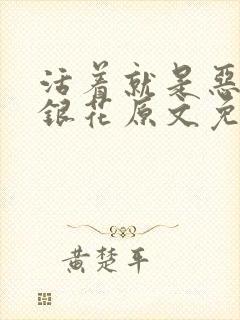 活着就是惡
銀花原文免
黄楚平